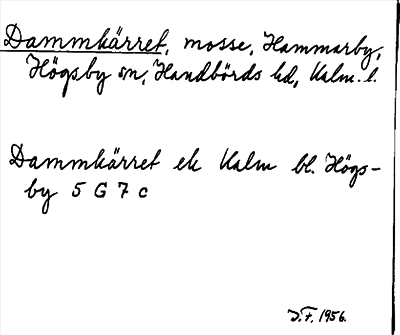 Dammkärret, mosse, Hammarby,
Högsby sn, Handbörds hd, Kalm. l.
Dammkärret ek Kalm bl. Högs-
by 5 G 7 c
J.F. 1956.